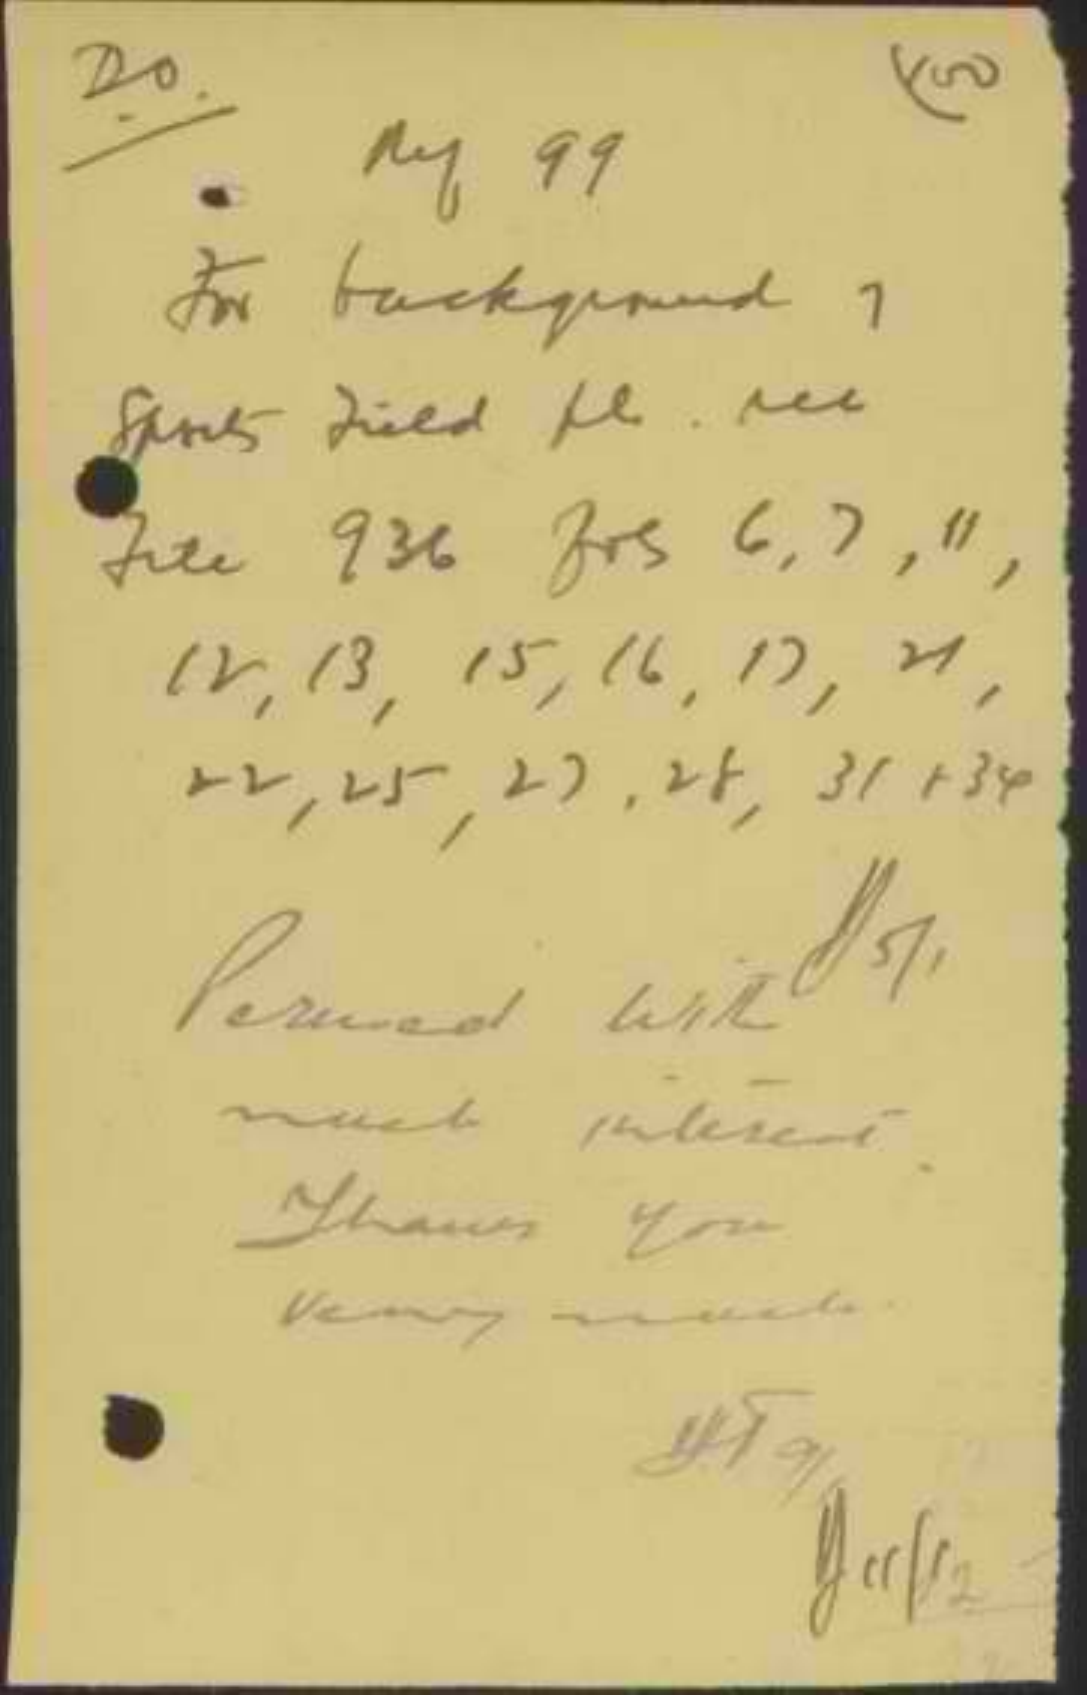 DO.
150
Ref 99
For background of
Sports Field pl. see
File 936 fols 6, 7, 11,
12, 13, 15, 16, 17, 21,
22, 25, 27, 28, 31 + 34
5/1
Perused with
much interest.
Thank you
very much.
11/12